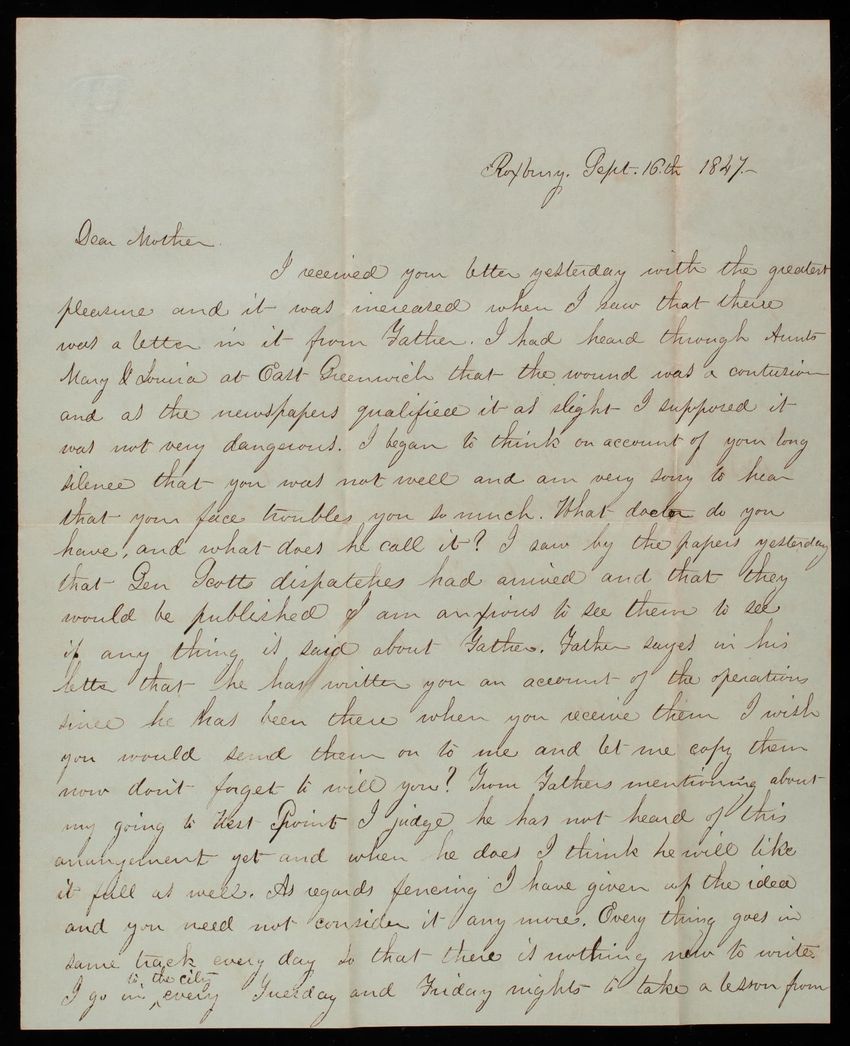 Roxbury. Sept. 16th 1847.
Dear Mother.
I received your letter yesterday with the greatest
pleasure and it was increased when I saw that there
was a letter in it from Father. I had heard through Aunts
Mary & Louisa at East Greenwich that the wound was a contusion
and as the newspapers qualified it as slight I supposed it
was not very dangerous. I began to think on account of your long
silence that you was not well and am very sorry to hear
that your face troubles you so much. What doctor do you
have, and what does he call it? I saw by the papers yesterday
that Gen Scotts dispatches had arrived and that they
would be published I am anxious to see them to see
if any thing is said about Father. Father sayes in his
letter that he has written you an account of the operations
since he has been there when you receive them I wish
you would send them on to me and let me copy them
now don't forget to will you? From Fathers mentioning about
my going to West Point I judge he has not heard of this
arrangement yet and when he does I think he will like
it full as well. As regards fencing I have given up the idea
and you need not consider it any more. Every thing goes in
same track every day so that there is nothing new to write
I go in to the city every Tuesday and Friday nights to take a lesson from